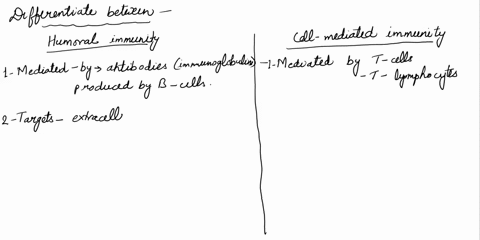 Differentiate between -
Humoral immunity
1- Mediated - by → antibodies (immunoglobulin)
produced by B-cells.
2- Targets - extracell
Cell-mediated immunity
1- Mediated by T-cells
- T- lymphocytes